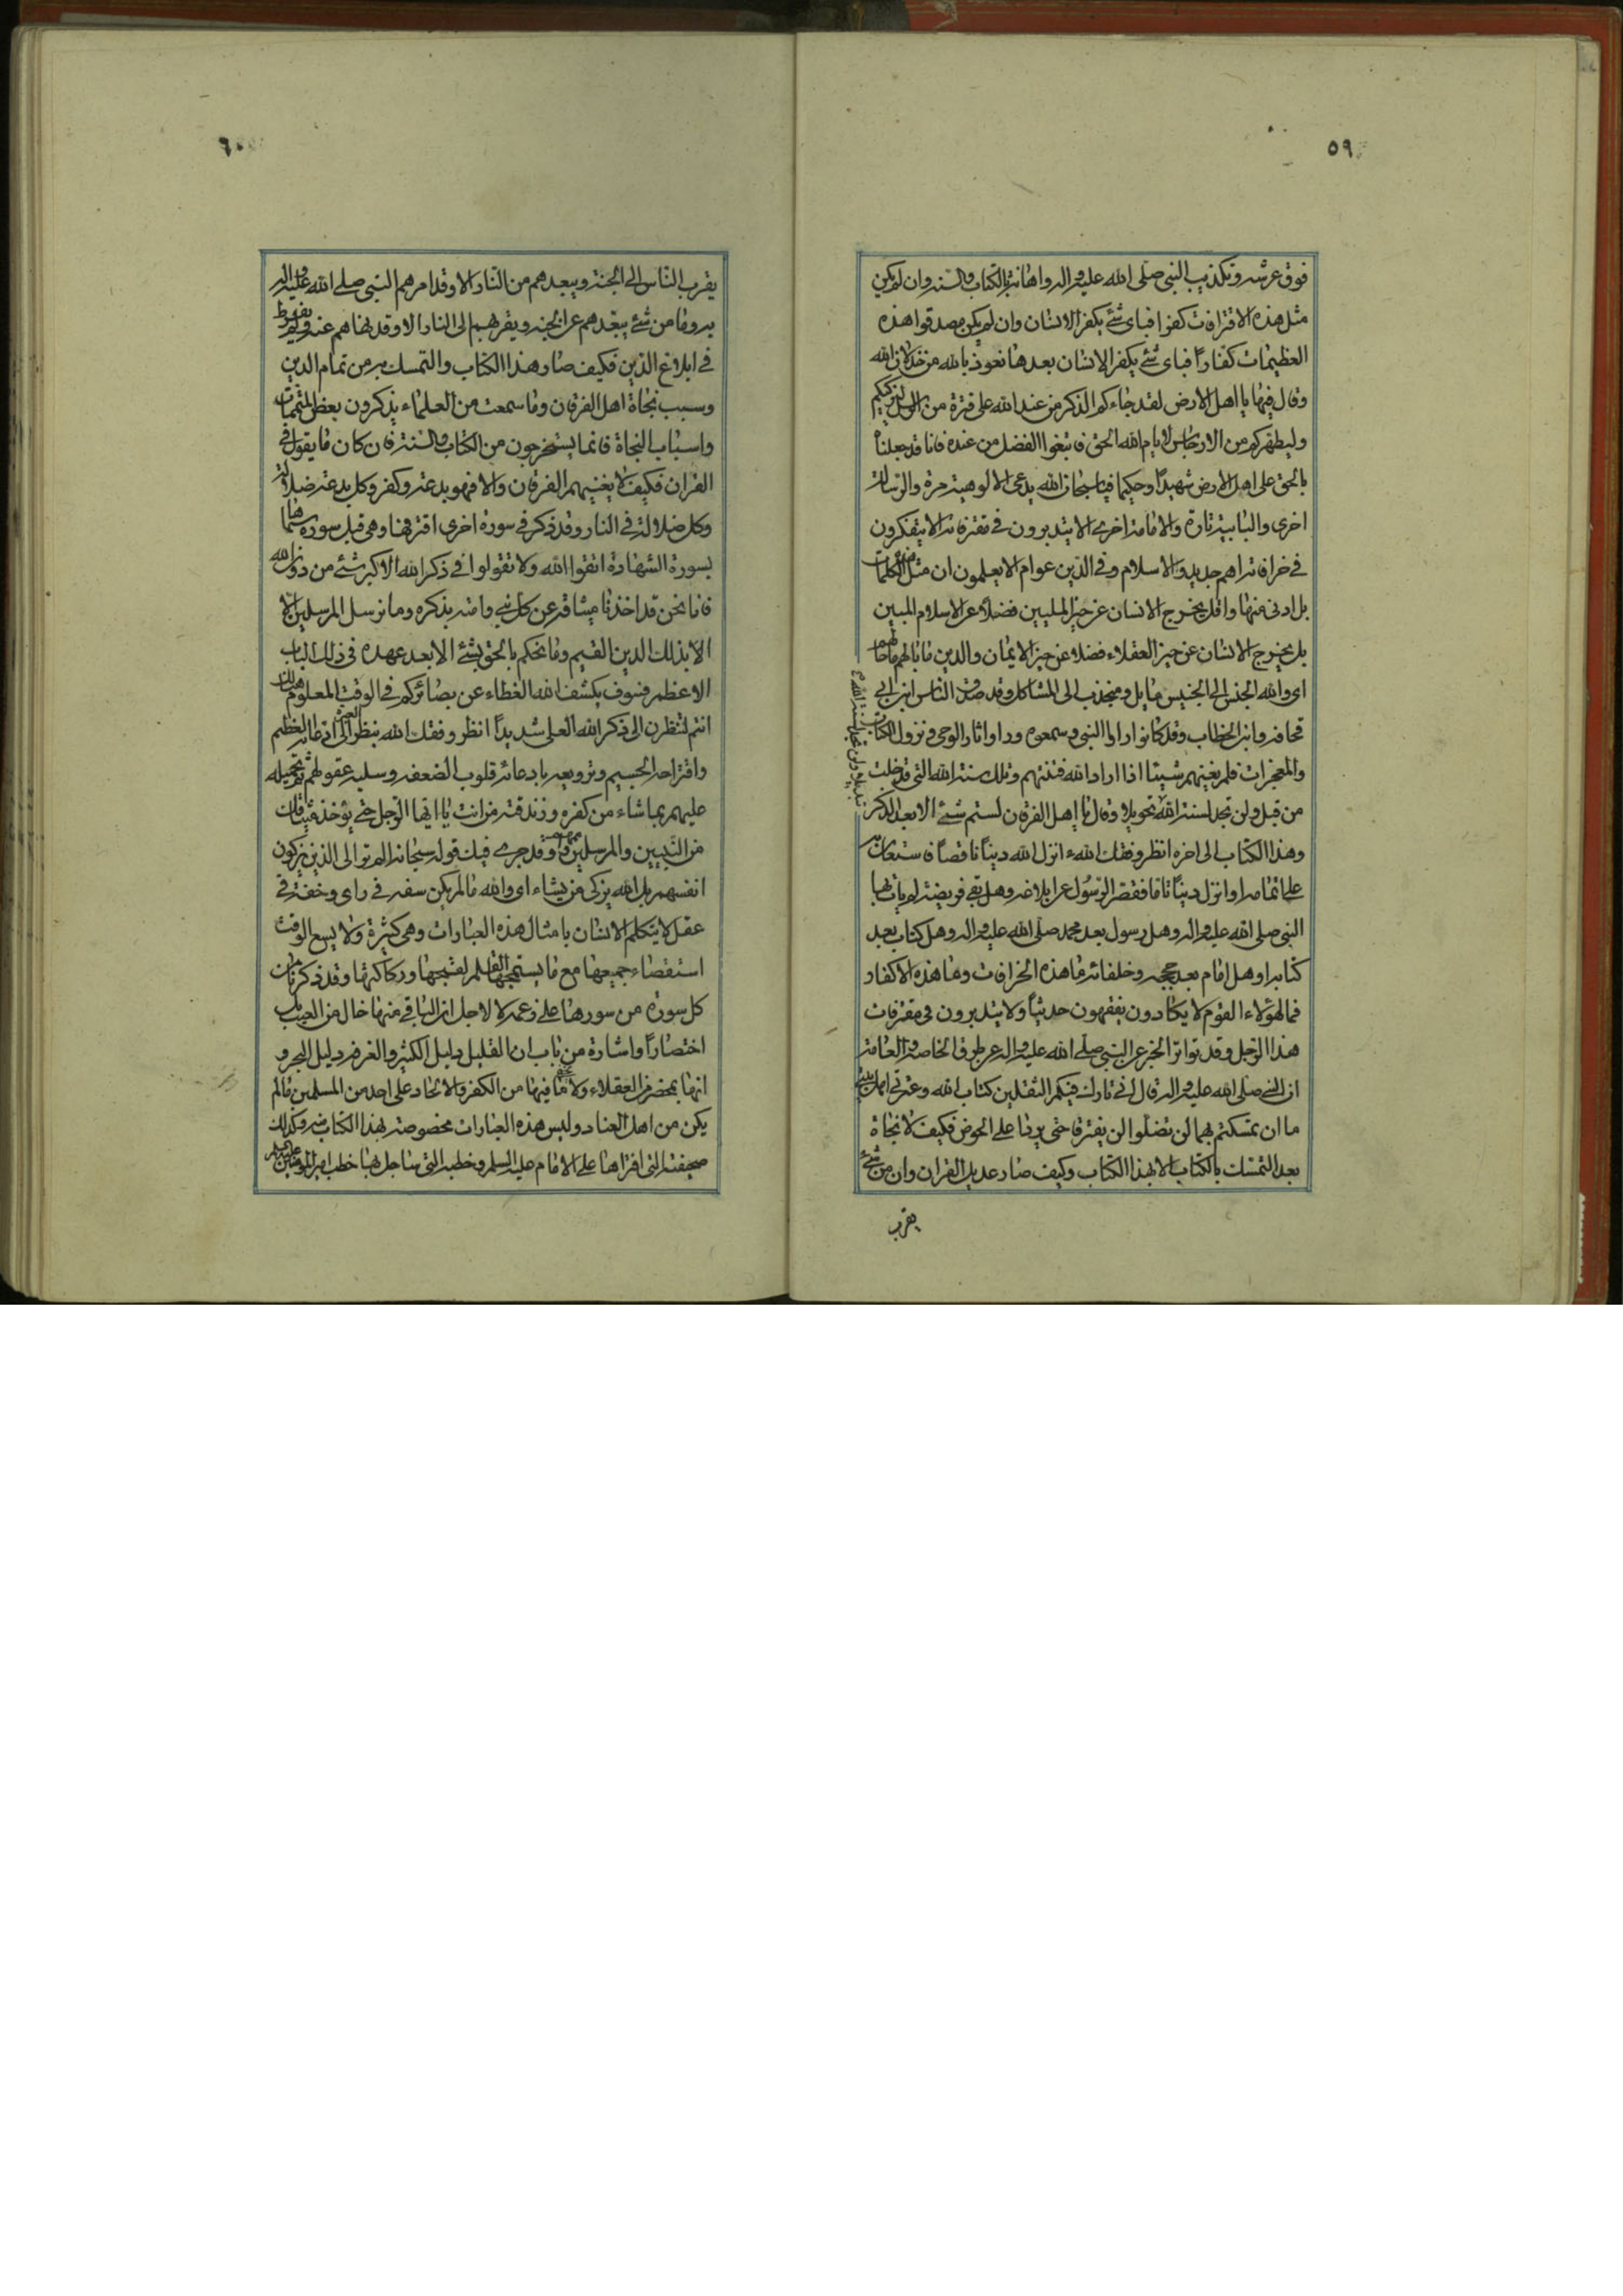 ٥٩
فوق عرشه وتكذيب النبي صلى الله عليه واله واهانته بالكتاب والسنه وان لم يكن
مثل هذه الاقترافات كفرا فباى شئ يكفر الانسان وان لم يكن مصدقوا هذه
العظيمات كفارا فباى شئ يكفر الانسان بعدها نعوذ بالله من خذلان الله
وقال فيها يا اهل الارض لقد جاءكم الذكر من عند الله على فترة من الرسل ليزكيكم
وليطهركم من الارجاس لايام الله الحق فابتغوا الفضل من عنده فانا قد جعلناه
بالحق على اهل الارض شهيدا وحكيما فيا سبحان الله يدعى الالوهية مرة والرسالة
اخرى والبابية تارة والامامة اخرى الا يتدبرون في مفترياته الا يتفكرون
في خرافاته اهم جديدوا الاسلام وفي الدين عوام الا يعلمون ان مثل هذه الكلمات
بل ادنى منها واقل يخرج الانسان عن حيز المليين فضلا عن الاسلام المبين
بل يخرج الانسان عن حيز العقلاء فضلا عن حيز الايمان والدين ما بالهم ما حالهم
اى والله الجنس الى الجنيس مايل ومنجذب الى المشاكل وقد صدق الناس ابن ابي
قحافة وابن الخطاب وقد كانوا راوا النبي وسمعوه وراوا اثار الوحى ونزول الكتاب
والمعجزات فلم يغنهم شيئا اذا اراد الله فتنتهم وتلك سنة الله التي قد خلت
من قبل ولن تجد لسنة الله تحويلا وقال يا اهل الفرقان لستم شئ الا بعد الذكر
وهذا الكتاب الى اخره انظر وفقك الله ء انزل الله دينا ناقصا فاستعان به
على اتمامه او انزل دينا تاما فقصر الرسول عن ابلاغه وهل بقى فريضة لم يات بها
النبي صلى الله عليه واله وهل رسول بعد محمد صلى الله عليه واله وهل كتاب بعد
كتابه او هل امام بعد حججه وخلفائه ما هذه الخرافات وما هذه الاكفار
فما لهؤلاء القوم لا يكادون يفقهون حديثا ولا يتدبرون في مفتريات
هذا الرجل وقد تواتر الخبر عن النبي صلى الله عليه واله عن طرق الخاصة والعامة
ان النبي صلى الله عليه واله قال اني تارك فيكم الثقلين كتاب الله وعترتي اهل بيتي
ما ان تمسكتم بهما لن تضلوا لن يفترقا حتى يردا على الحوض فكيف لا نجاة
بعد التمسك بالكتاب الا بهذا الكتاب وكيف صار عديل القران وان من شئ
يقرب
٦٠
يقرب الناس الى الجنة ويبعدهم من النار الا وقد امرهم النبي صلى الله عليه واله
به وما من شئ يبعدهم عن الجنة ويقربهم الى النار الا وقد نهاهم عنه ولم يفرط
في ابلاغ الدين فكيف صار هذا الكتاب والتمسك به من تمام الدين
وسبب نجاة اهل الفرقان وما سمعت من العلماء يذكرون بعض المتممات
واسباب النجاة فانما يستخرجون من الكتاب والسنة فان كان ما يقول في
القران فكيف لا يغنيهم الفرقان والا فهو بدعة وكفر وكل بدعة ضلالة
وكل ضلالة في النار وقد ذكر في سورة اخرى اقترفها وهي قبل سورة سماها
بسورة الشهادة اتقوا الله ولا تقولوا في ذكر الله الاكبر شئ من دون الله
فانا نحن قد اخذنا ميثاقه عن كل نبي وامته بذكره وما نرسل المرسلين الا
الا بذلك الدين القيم وما نحكم بالحق بشئ الا بعد عهده في ذلك الباب
الاعظم فسوف يكشف الله الغطاء عن بصائركم في الوقت المعلوم هنالك
انتم لتنظرن الى ذكر الله العلى شديدا انظر وفقك الله بنظر العبرة الى ادعائه العظيم
وافتراءه الجسيم وترويعه بادعائه قلوب الضعفه وسلبه عقولهم بتحميله
عليهم بما شاء من كفره وزندقته من انت يا ايها الرجل حتى يؤخذ ميثاقك
من النبيين والمرسلين وقد جرى فيك قوله سبحانه الم تر الى الذين يزكون
انفسهم بل الله يزكى من يشاء اى والله ما لم يكن سفه في راى وخفة في
عقل لا يتكلم الانسان بامثال هذه العبارات وهي كثيرة ولا يسع الوقت
استقصاء جميعها مع ما يستهجنها القلم لقبحها وركاكتها وقد ذكرنا من
كل سورة من سورها على زعمه لا لاجل ان الباقي منها خال من العيب بل
اختصارا واشارة من باب ان القليل دليل الكثير والغرفه دليل البحر و
انها بمحضر من العقلاء ولا يخفى ما فيها من الكفر والالحاد على احد من المسلمين ما لم
يكن من اهل العناد وليس هذه العبارات مخصوصة بهذا الكتاب منه وكذلك
صحيفته التي افتراها على الامام عليه السلام وخطبه التي ساجل بها خطب امير المؤمنين عليه السلام